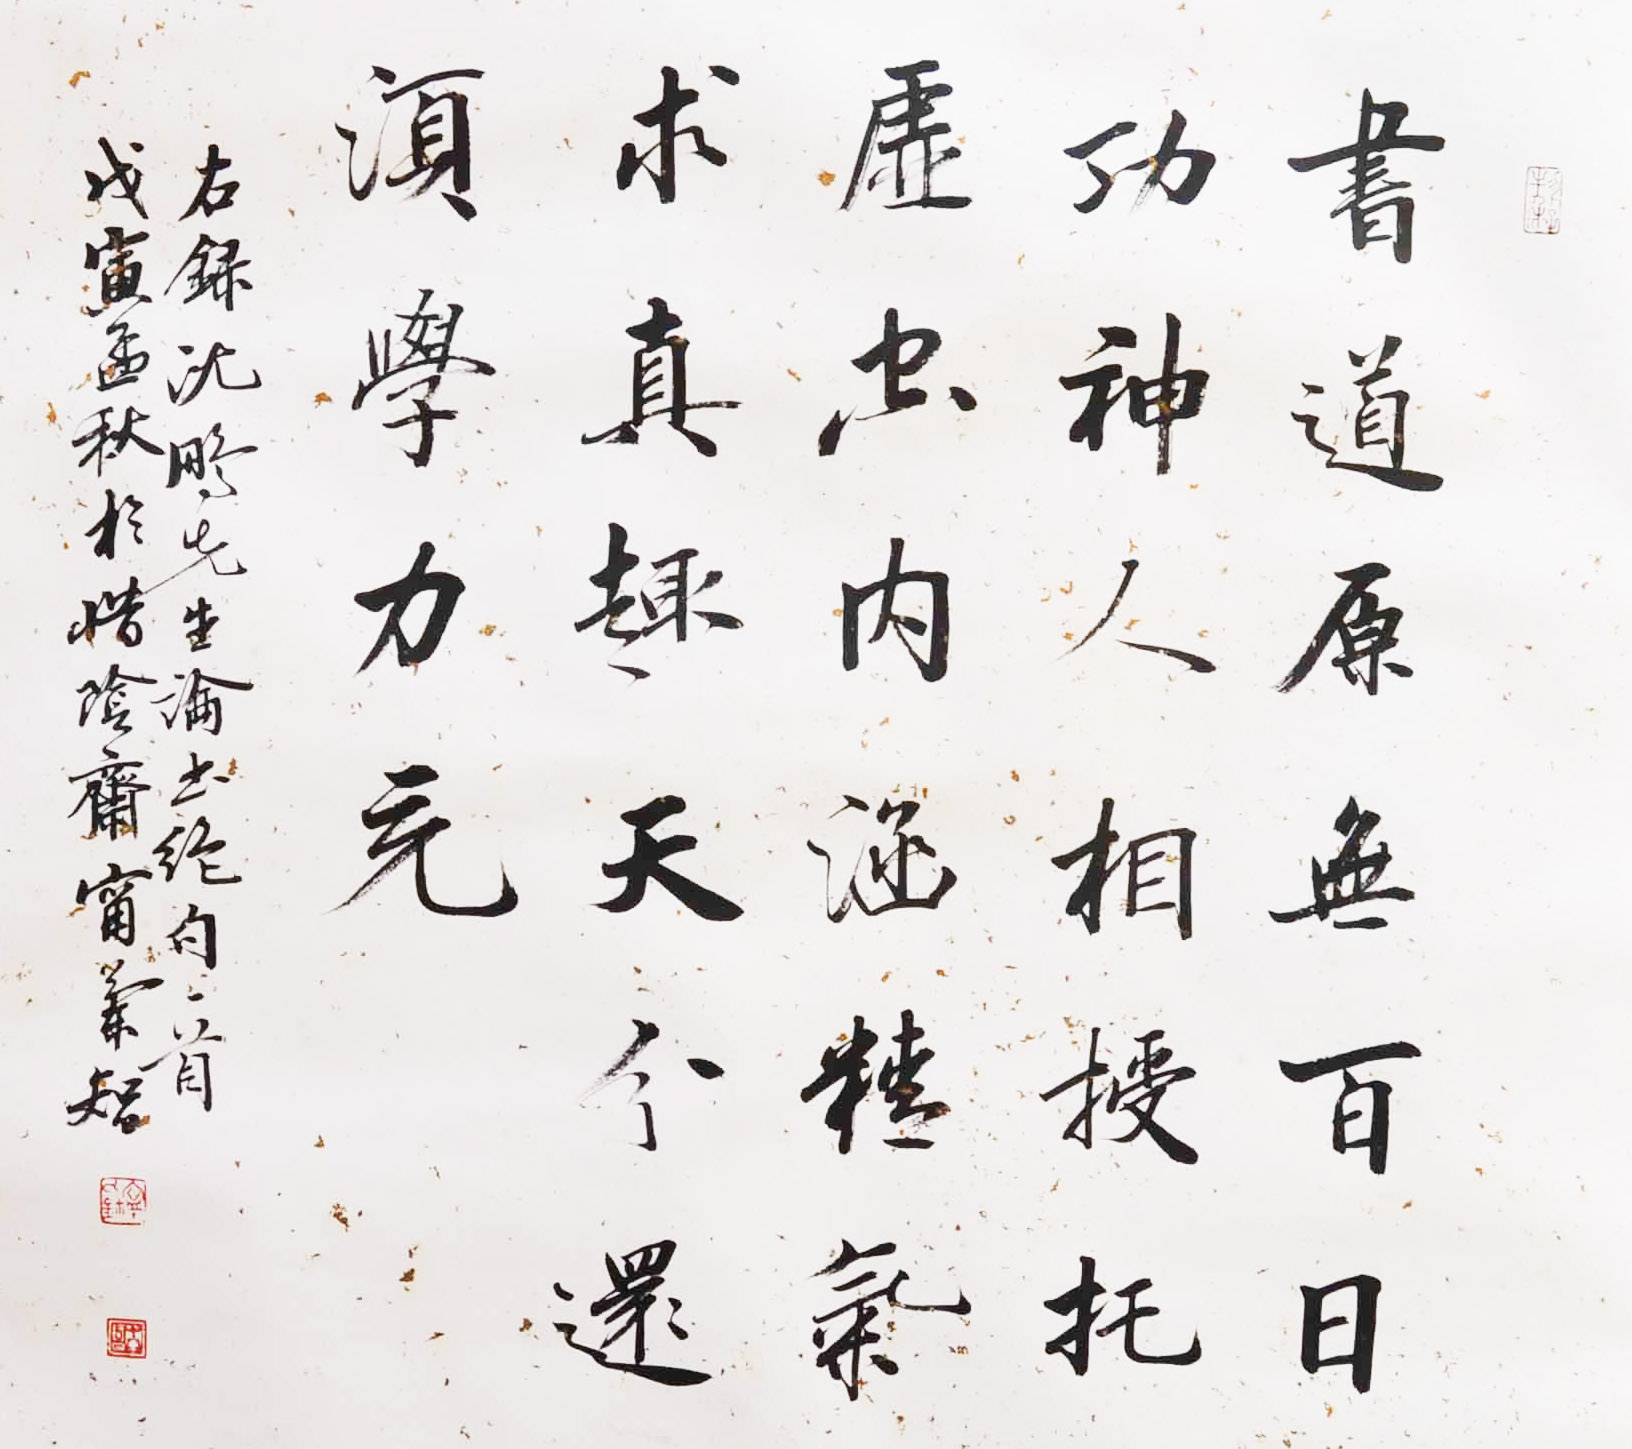 書道原無百日
功神人相授托
虛空内涵精氣
求真趣天分還
須學力充
右錄沈鵬先生論书絕句一首
戊寅孟秋於惜陰齋甯業智